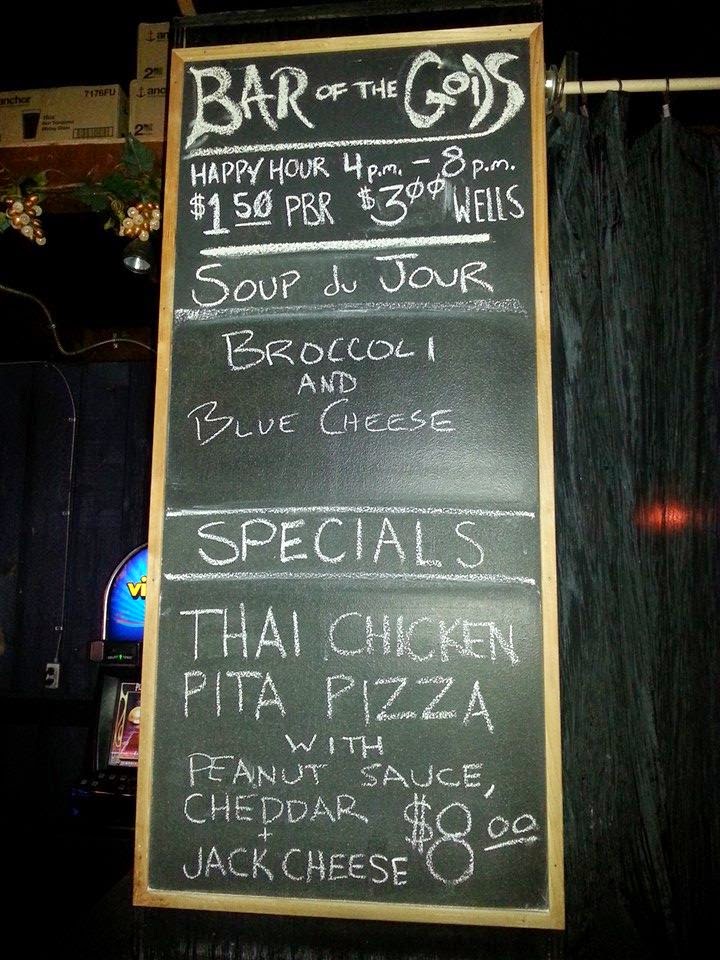 BAR OF THE GODS
HAPPY HOUR 4 p.m. - 8 p.m.
$1 50 PBR $3 00 WELLS
SOUP du JOUR
BROCCOLI
AND
BLUE CHEESE
SPECIALS
THAI CHICKEN
PITA PIZZA
WITH
PEANUT SAUCE,
CHEDDAR $8 00
+
JACK CHEESE
anchor 7176FU